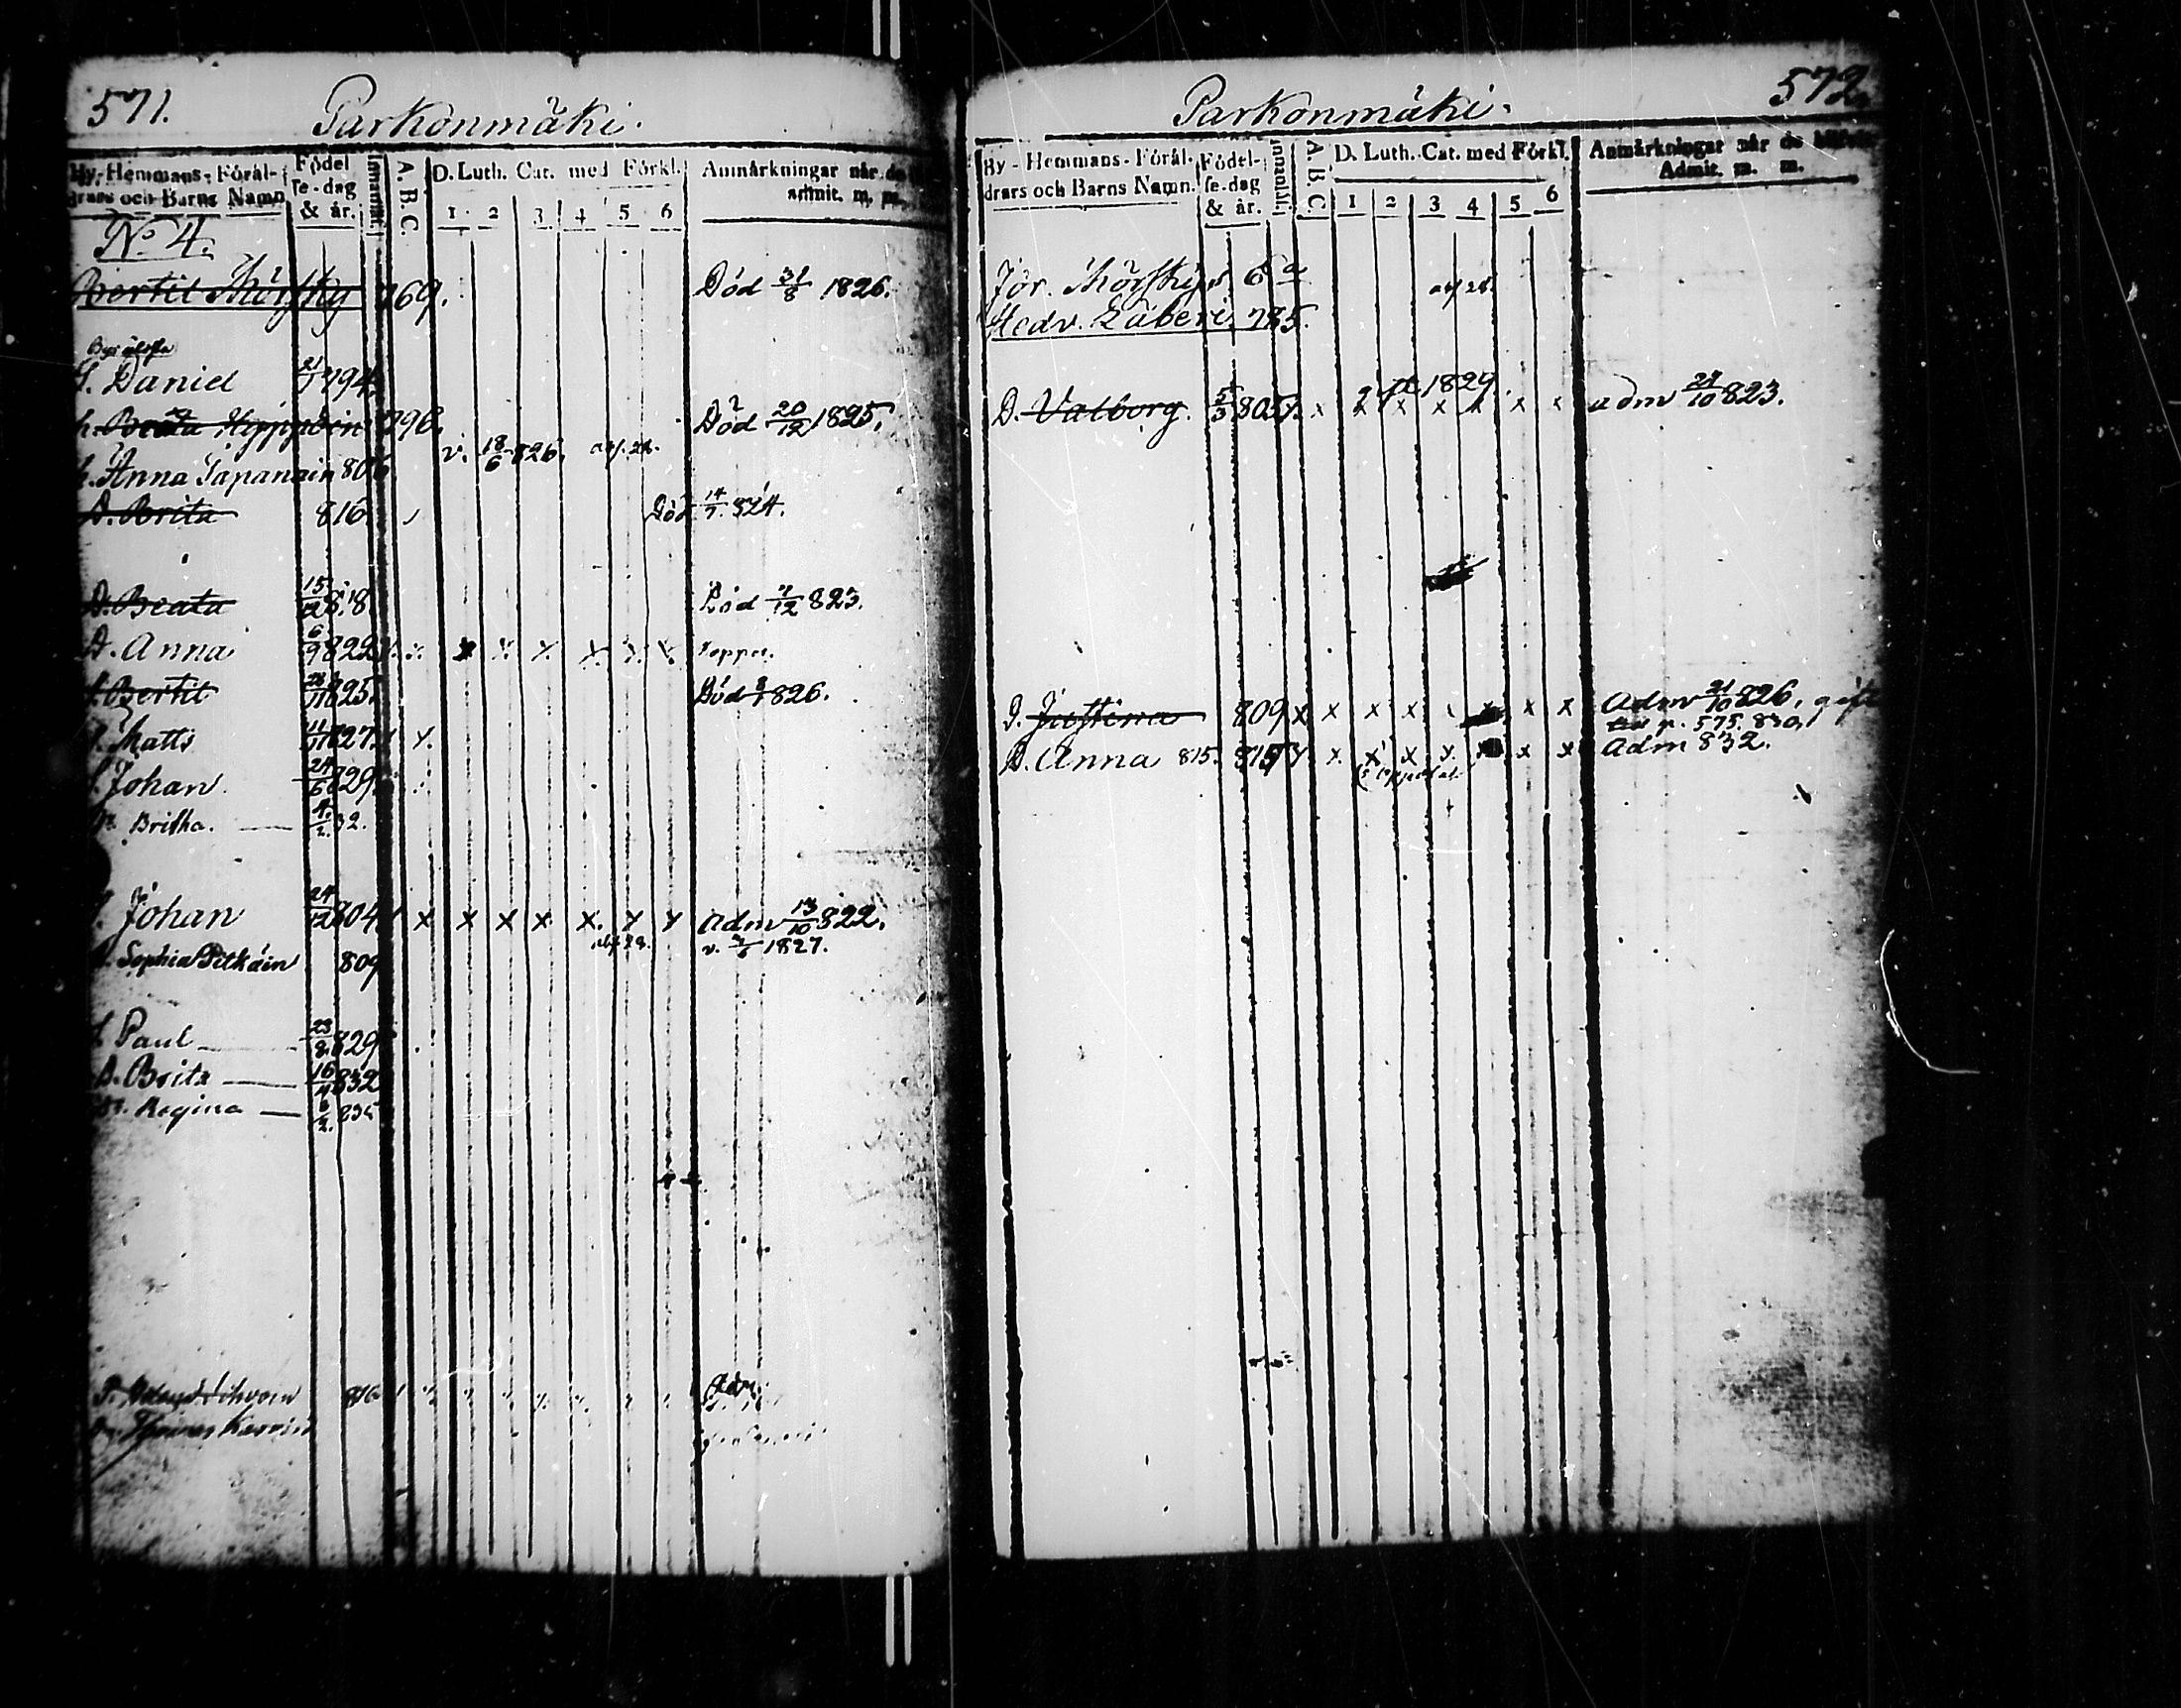 571.
Parkonmäki.
By-Hemmans-Föräl-
drars och Barns Namn
Födel
se-dag
& år.
Innanläs.
A. B. C.
D. Luth. Cat. med Förkl.
1 2 3 4 5 6
Anmärkningar når de
admit. m. m.
No 4.
Bertil Mörsky 769. Död 31/8 1826.
S. Daniel 21/7 794.
h. Beata 796. Död 20/12 1825.
h. Anna Tapanain 806 v. 18/6 826.
D. Brita 816. Död 14/7 824.
D. Beata 15/12 818 Död 7/12 823.
D. Anna 6/9 822 x x x x x x x koppor.
S. Bertil 825. Död 826.
S. Matts 11/11 827. x
S. Johan 24/6 829.
Dr Britha. 4/2 32.
S. Johan 24/12 804 x x x x x x x adm 13/10 822.
v. 1827.
h. Sophia Pitkäin 809
S Paul 23/8 829
D. Brita 16/4 832
Dr. Regina
816
572.
Parkonmäki.
By-Hemmans-Föräl-
drars och Barns Namn.
Födel-
se-dag
& år.
Innanläs.
A. B. C.
D. Luth. Cat. med Förkl.
1 2 3 4 5 6
Anmärkningar når de
Admit. m. m.
Jör. Mörskys
Hedv. 785.
D. Valborg. 5/3 805 x x x x x x x 1829. adm 24/10 823.
D. Justina 809 x x x x x x adm 21/10 826, gift
p. 575 830.
D. Anna 815. 815 x x x x x x adm 832.